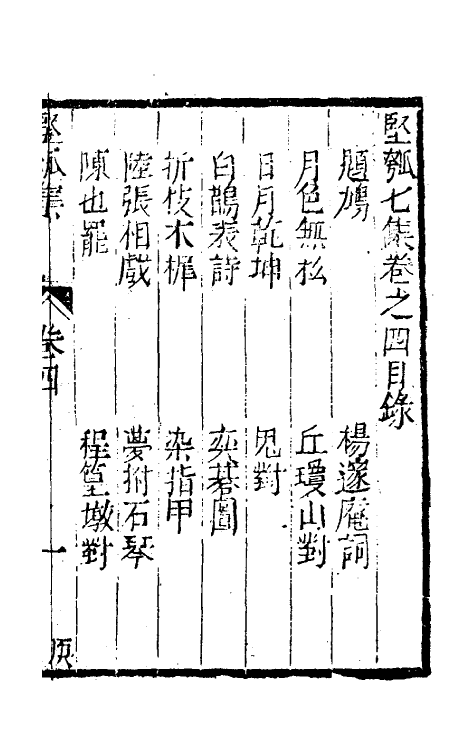 堅瓠七集卷之四目錄
題鳩
楊邃庵詞
月色無私
丘瓊山對
日月乾坤
鬼對
白鵲表詩
奕碁圖
折枝木樨
染指甲
陸張相戲
夢拊石琴
陳也罷
程篁墩對
堅瓠集
卷四
一